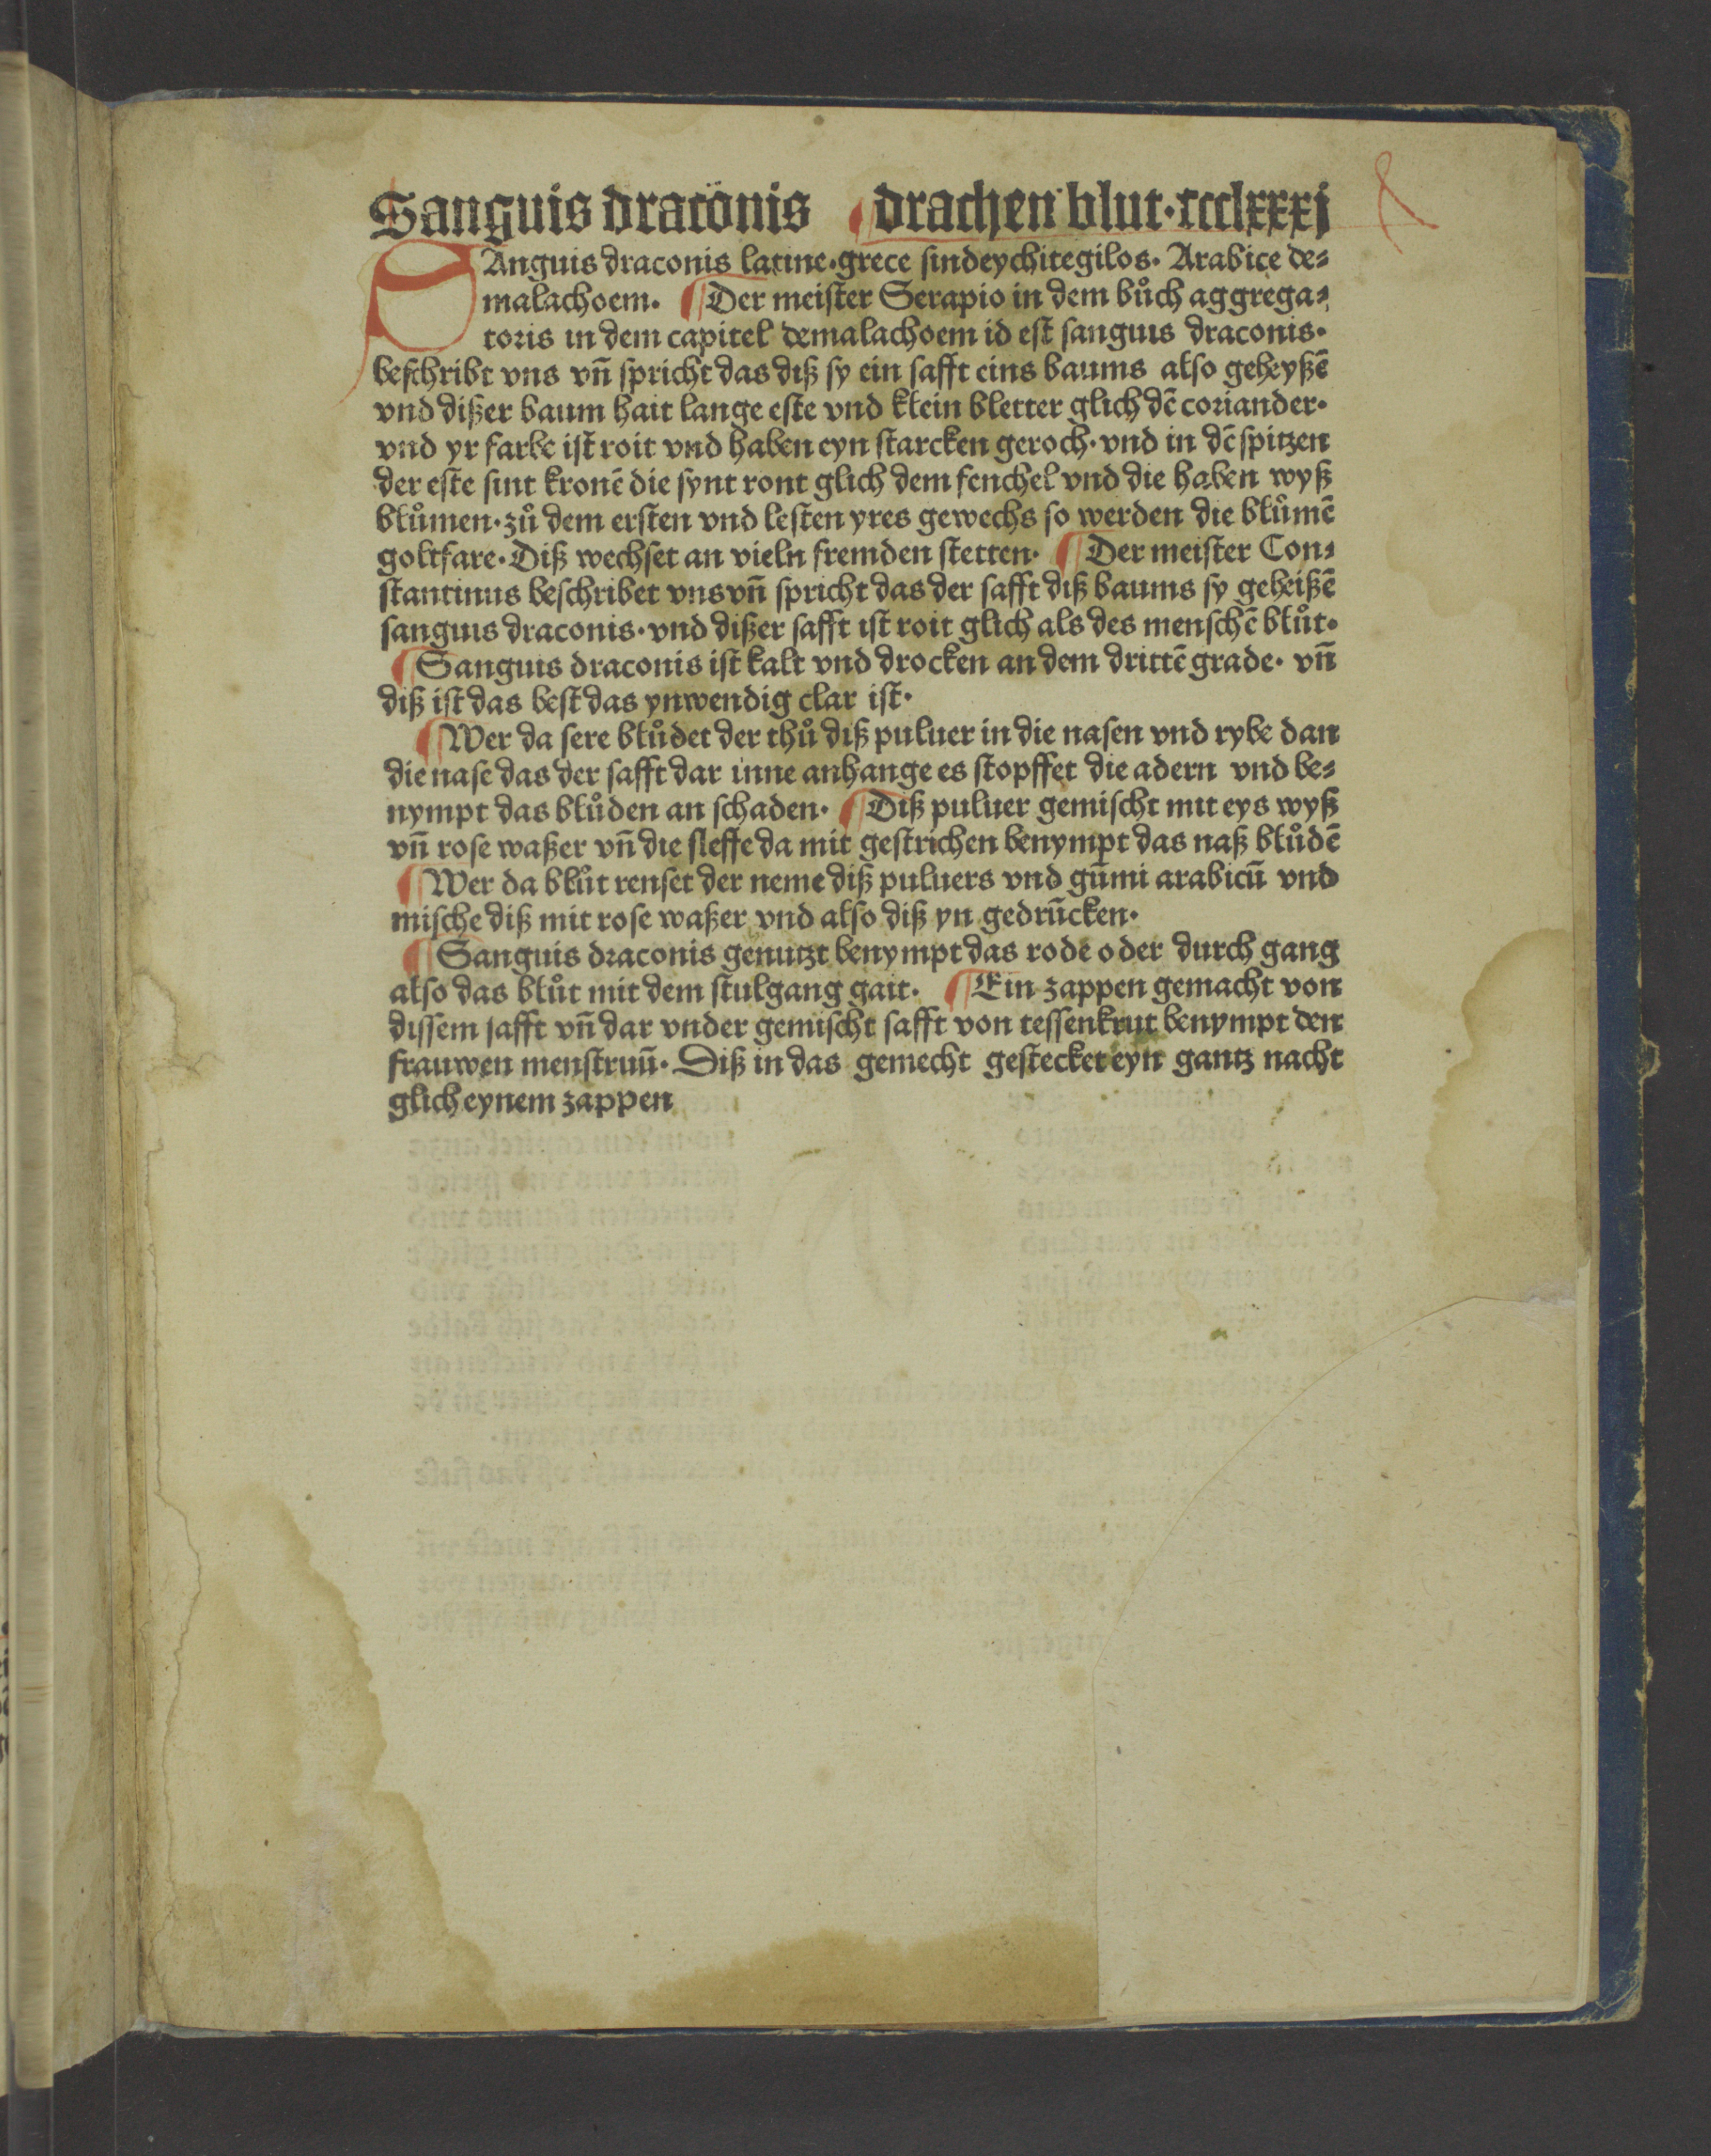 Sanguis draconis ¶ drachen blut·ccclxxxj
SAnguis draconis latine·grece sindeychitegilos· Arabice de⸗
malachoem· ¶ Der meister Serapio in dem bůch aggrega⸗
toris in dem capitel demalachoem id est sanguis draconis·
beschribt vns vn̄ spricht das diß sy ein safft eins baums also geheyßē
vnd dißer baum hait lange este vnd klein bletter glich dē coriander·
vnd yr farbe ist roit vnd haben eyn starcken geroch·vnd in dē spitzen
der este sint kronē die synt ront glich dem fenchel vnd die haben wyß
blůmen·zů dem ersten vnd lesten yres gewechs so werden die blůmē
goltfare·Diß wechset an vieln fremden stetten· ¶ Der meister Con⸗
stantinus beschribet vns vn̄ spricht das der safft diß baums sy geheißē
sanguis draconis·vnd dißer safft ist roit glich als des menschē blůt·
¶ Sanguis draconis ist kalt vnd drocken an dem drittē grade· vn̄
diß ist das best das ynwendig clar ist·
¶ Wer da sere blůdet der thů diß puluer in die nasen vnd rybe dan
die nase das der safft dar inne anhange es stopffet die adern vnd be⸗
nympt das blůden an schaden· ¶ Diß puluer gemischt mit eys wyß
vn̄ rose waßer vn̄ die sleffe da mit gestrichen benympt das naß blůdē
¶ Wer da blůt renset der neme diß puluers vnd gūmi arabicū vnd
mische diß mit rose waßer vnd also diß yn gedrūcken·
¶ Sanguis draconis genutzt benympt das rode oder durch gang
also das blůt mit dem stulgang gait· ¶ Ein zappen gemacht von
dissem safft vn̄ dar vnder gemischt safft von tessenkrut benympt den
frauwen menstruū·Diß in das gemecht gestecket eyn gantz nacht
glich eynem zappen